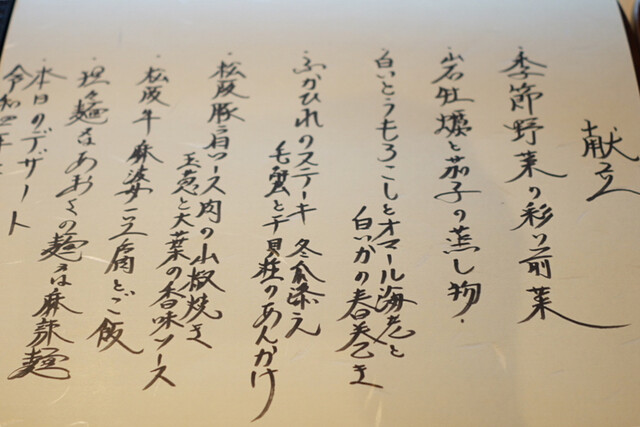 献立
・季節野菜の彩り前菜
・岩牡蠣と茄子の蒸し物・
・白いとうもろこしとオマール海老と
白いかの春巻き
・ふかひれのステーキ 冬瓜添え
毛蟹と干貝柱のあんかけ
・松阪豚肩ロース肉の山椒焼き
玉葱と大葉の香味ソース
・松阪牛麻婆豆腐とご飯
・坦々麺又はあおさの麺又は麻辣麺
・本日のデザート
令和四年